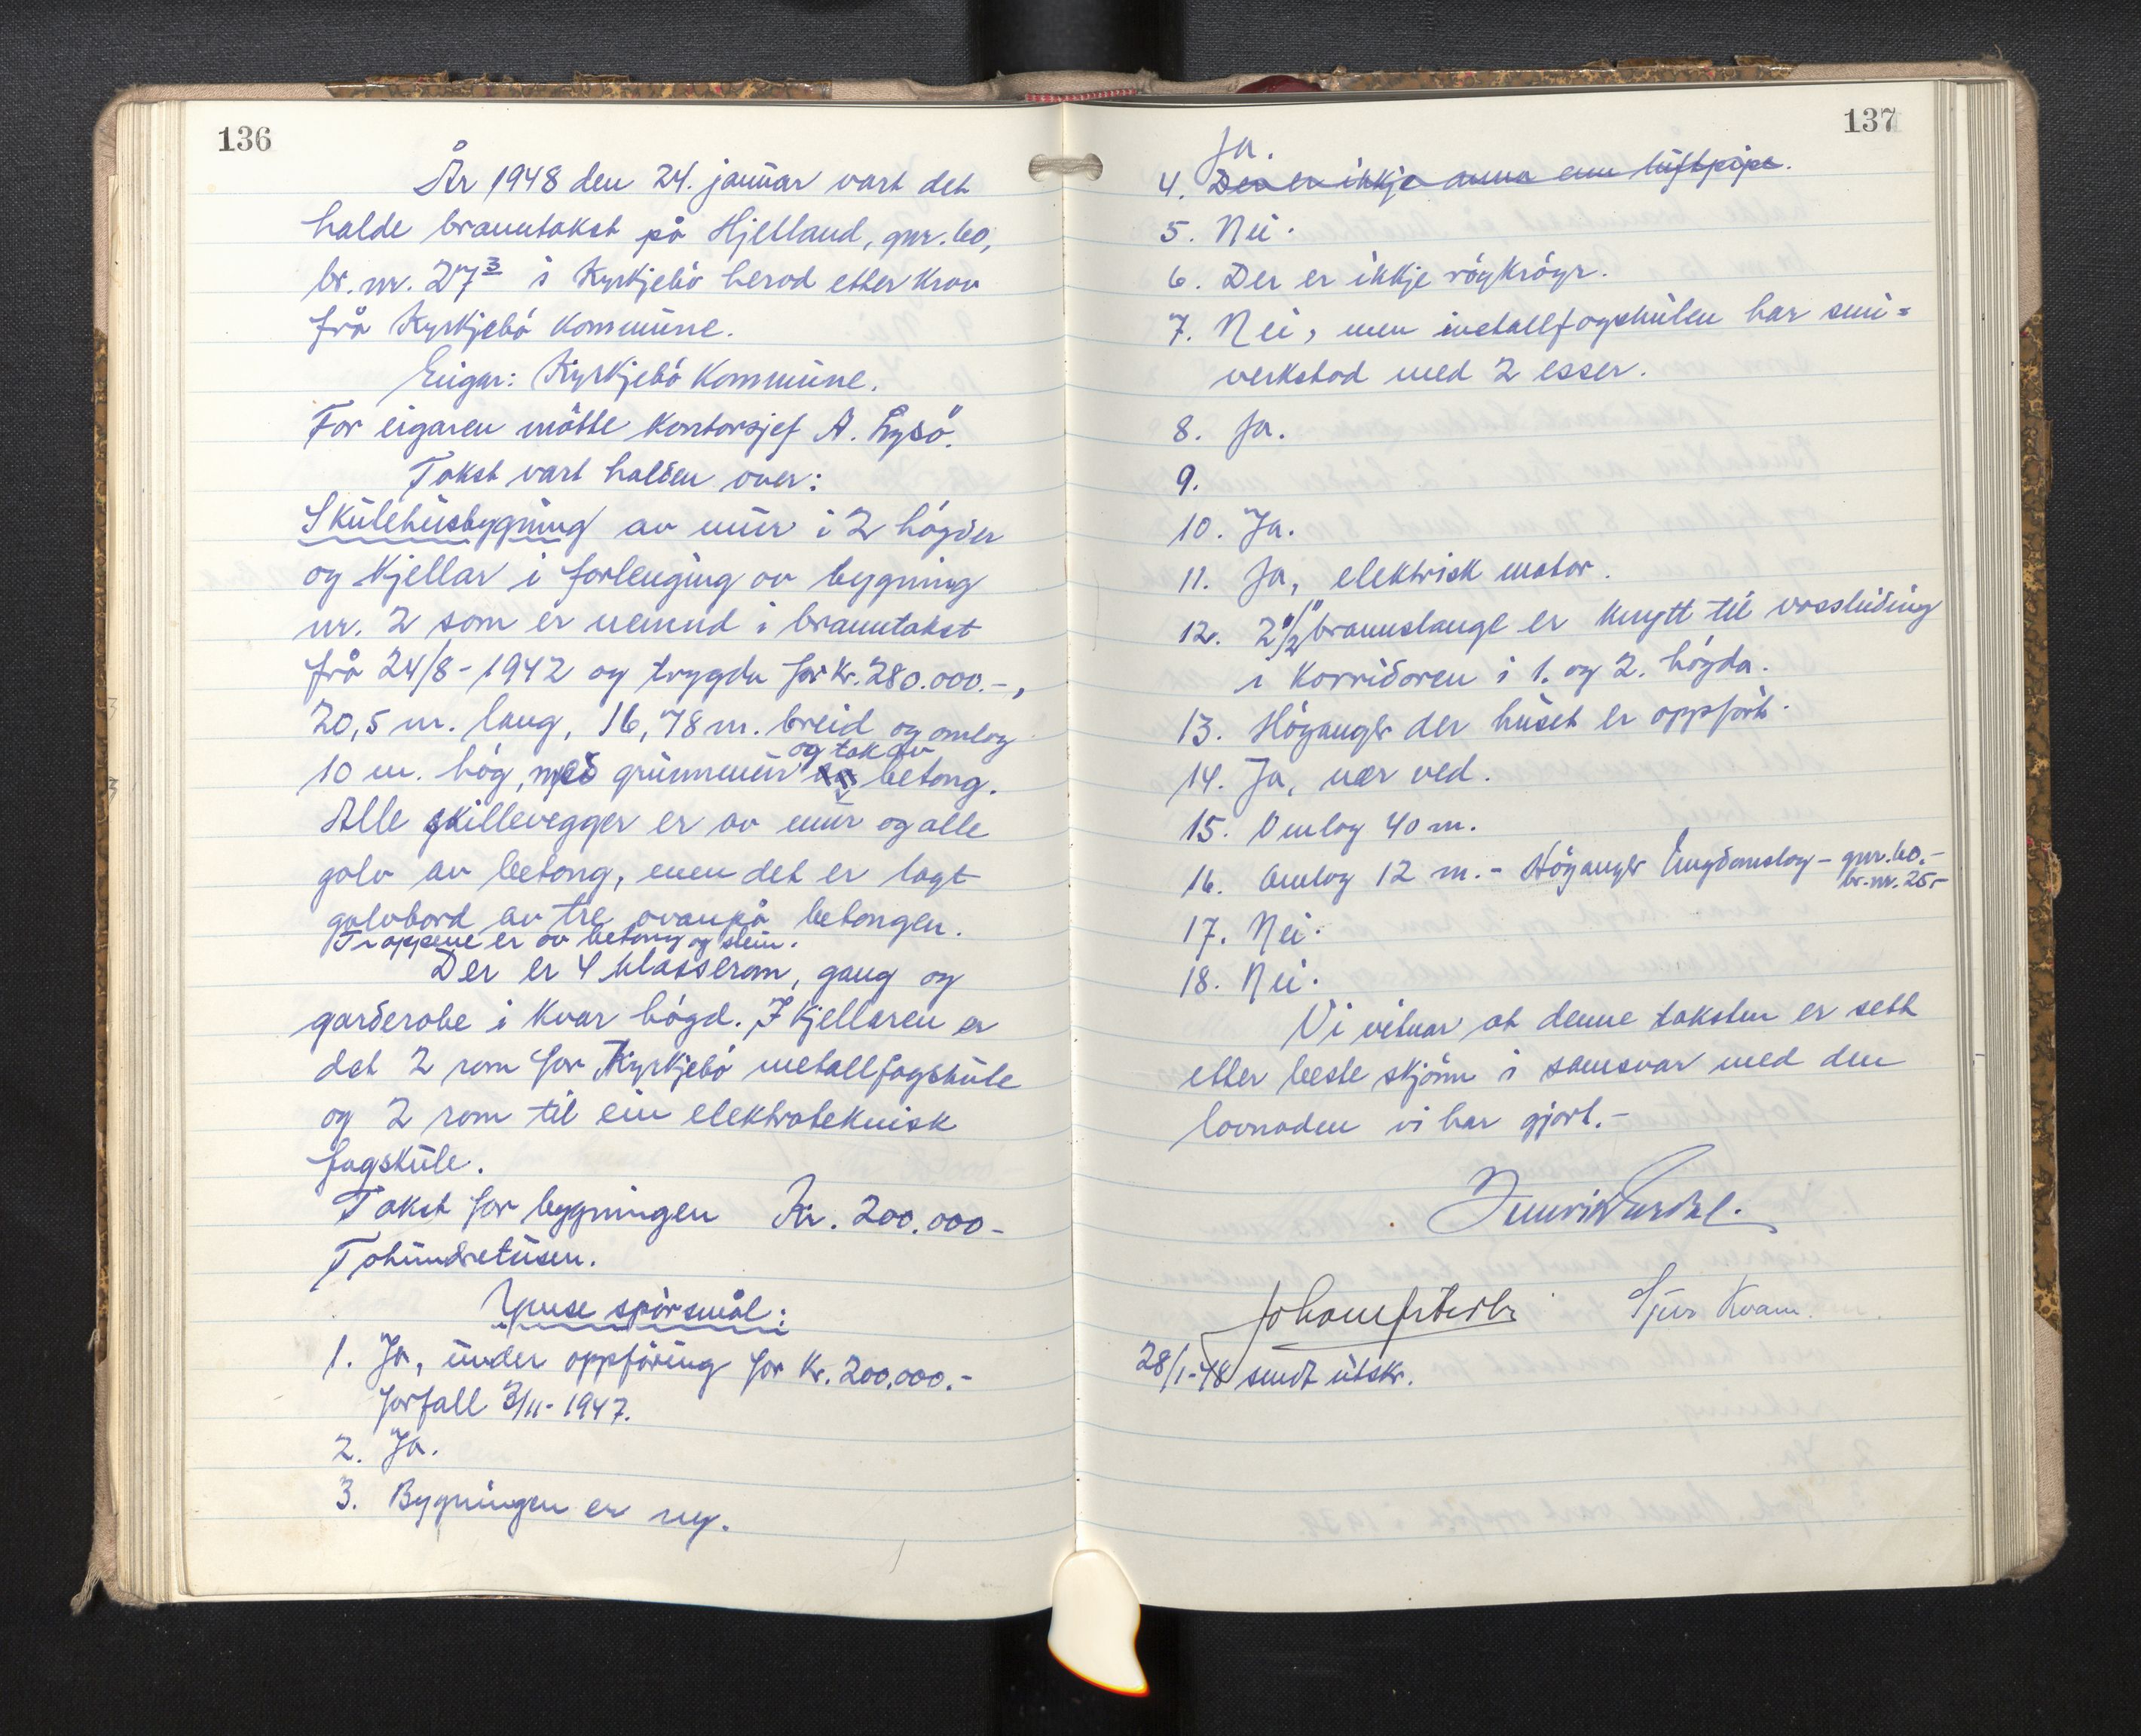 136
År 1948 den 24. januar vart det
halde branntakst på Hjelland, gnr. 60,
br. nr. 27³ i Kyrkjebö herad etter krav
frå Kyrkjebö kommune.
Eigar: Kyrkjebö Kommune.
For eigaren møtte kontorsjef A.
Takst vart halden over:
Skulehusbygning av mur i 2 högder
og kjellar i forlenging av bygning
nr. 2 som er nemnd i branntakst
frå 24/8-1942 og trygda for Kr. 280.000.-,
20,5 m. lang, 16,78 m. breid og omlag
10 m. høg, med grunnmur og tak av betong.
Alle skillevegger er av mur og alle
golv av betong, men det er lagt
golvbord av tre ovanpå betongen.
Trappene er av betong og stein.
Der er 4 klasserom, gang og
garderobe i kvar högd. I kjellaren er
det 2 rom for Kyrkjebö metallfagskule
og 2 rom til ein elektroteknisk
fagskule.
Takst for bygningen Kr. 200.000-
Tohundretusen.
Ymse spörsmål:
1. Ja, under oppföring for Kr. 200.000.-
forfall 3/11-1947.
2. Ja.
3. Bygningen er ny.
137
Ja.
4. Der er ikkje anna enn luftpipe.
5. Nei.
6. Der er ikkje röykrögr.
7. Nei, men metallfagskulen har smi=
verkstad med 2 esser.
8. Ja.
9.
10. Ja.
11. Ja, elektrisk motor.
12. 2 1/2" brannslange er knytt til vassleiding
i korridoren i 1. og 2. högda.
13. Höyanger der huset er oppfört.
14. Ja, nær ved.
15. Omlag 40 m.
16. Omlag 12 m. - Höyanger Ungdomslag - gnr. 60.-
br. nr. 25.-
17. Nei.
18. Nei.
Vi vitnar at denne taksten er sett
etter beste skjönn i samsvar med den
lovnaden vi har gjort.-
Sjur Kvam.
28/1-48 sendt utskr.